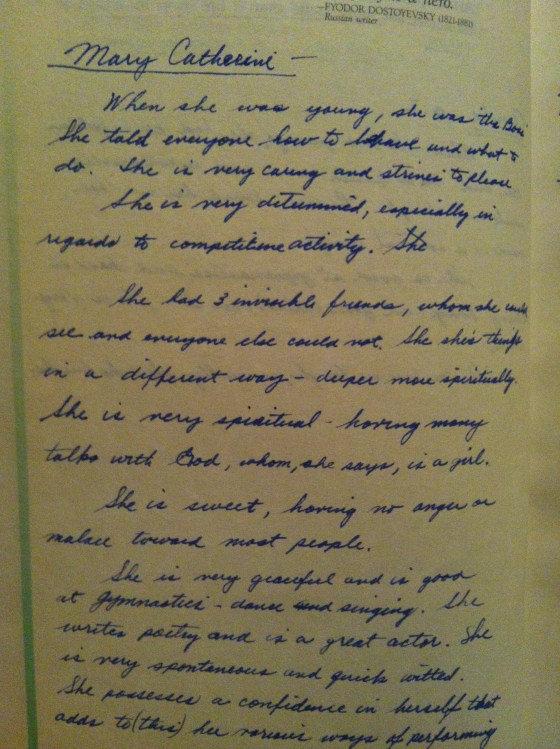 a hero.
—FYODOR DOSTOYEVSKY (1821-1881)
Russian writer
Mary Catherine —
When she was young, she was "the Boss
She told everyone how to behave and what to
do. She is very caring and strives to please
She is very determined, especially in
regards to competitive activity. She
She had 3 invisible friends, whom she could
see and everyone else could not. She she's things
in a different way - deeper more spiritually.
She is very spiritual - having many
talks with God, whom, she says, is a girl.
She is sweet, having no anger or
malace toward most people.
She is very graceful and is good
at gymnastics - dance and singing. She
writes poetry and is a great actor. She
is very spontaneous and quick witted.
She possesses a confidence in herself that
adds to (this) her various ways of performing